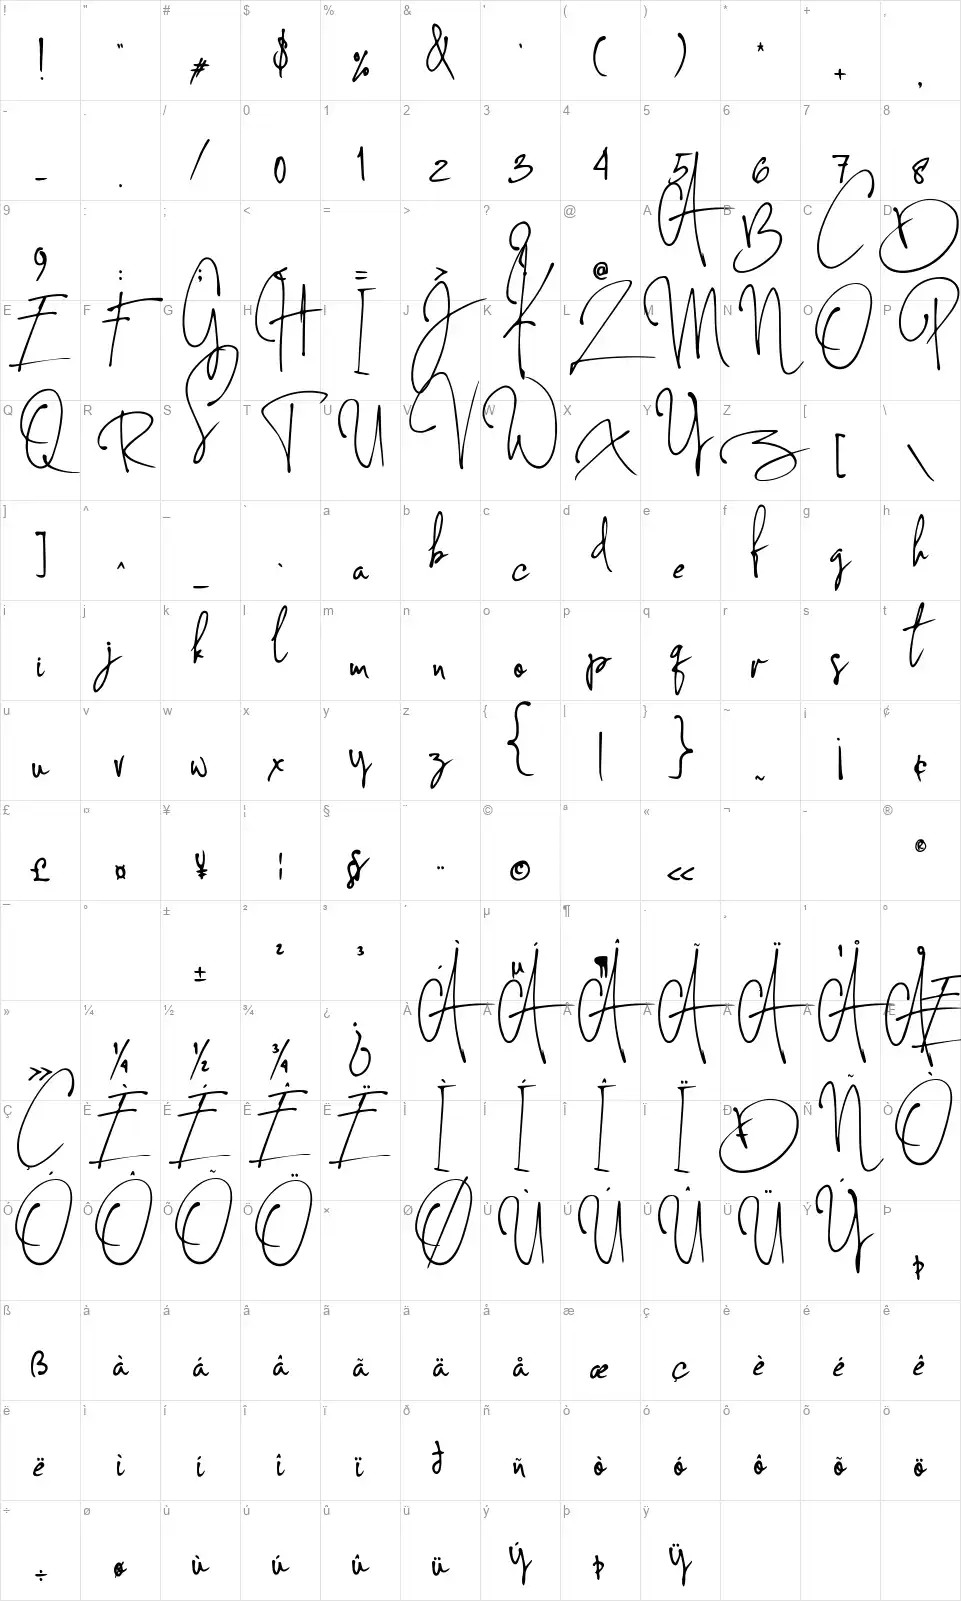 ! " # $ % & ' ( ) * + ,
! " # $ % & ' ( ) * + ,
- . / 0 1 2 3 4 5 6 7 8
- . / 0 1 2 3 4 5 6 7 8
9 : ; < = > ? @ A B C D
9 : ; < = > ? @ A B C D
E F G H I J K L M N O P
E F G H I J K L M N O P
Q R S T U V W X Y Z [ \
Q R S T U V W X Y Z [ \
] ^ _ ` a b c d e f g h
] ^ _ ` a b c d e f g h
i j k l m n o p q r s t
i j k l m n o p q r s t
u v w x y z { | } ~ ¡ ¢
u v w x y z { | } ~ ¡ ¢
£ ¤ ¥ ¦ § ¨ © ª « ¬ - ®
£ ¤ ¥ ¦ § ¨ © « ®
¯ ° ± ² ³ ´ µ ¶ · ¸ ¹ º
± ² ³ ´ µ ¶ ¹ º
» ¼ ½ ¾ ¿ À Á Â Ã Ä Å Æ
» ¼ ½ ¾ ¿ À Á Â Ã Ä Å Æ
Ç È É Ê Ë Ì Í Î Ï Ð Ñ Ò
Ç È É Ê Ë Ì Í Î Ï Ð Ñ Ò
Ó Ô Õ Ö × Ø Ù Ú Û Ü Ý Þ
Ó Ô Õ Ö Ø Ù Ú Û Ü Ý Þ
ß à á â ã ä å æ ç è é ê
ß à á â ã ä å æ ç è é ê
ë ì í î ï ð ñ ò ó ô õ ö
ë ì í î ï ð ñ ò ó ô õ ö
÷ ø ù ú û ü ý þ ÿ
÷ ø ù ú û ü ý þ ÿ